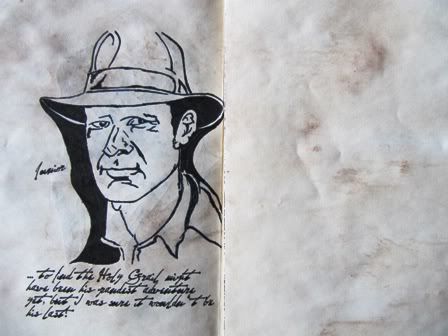 Junior
... to find the Holy Grail, might
have been his grandest adventure
yet, but I was sure it wouldn't be
his last!